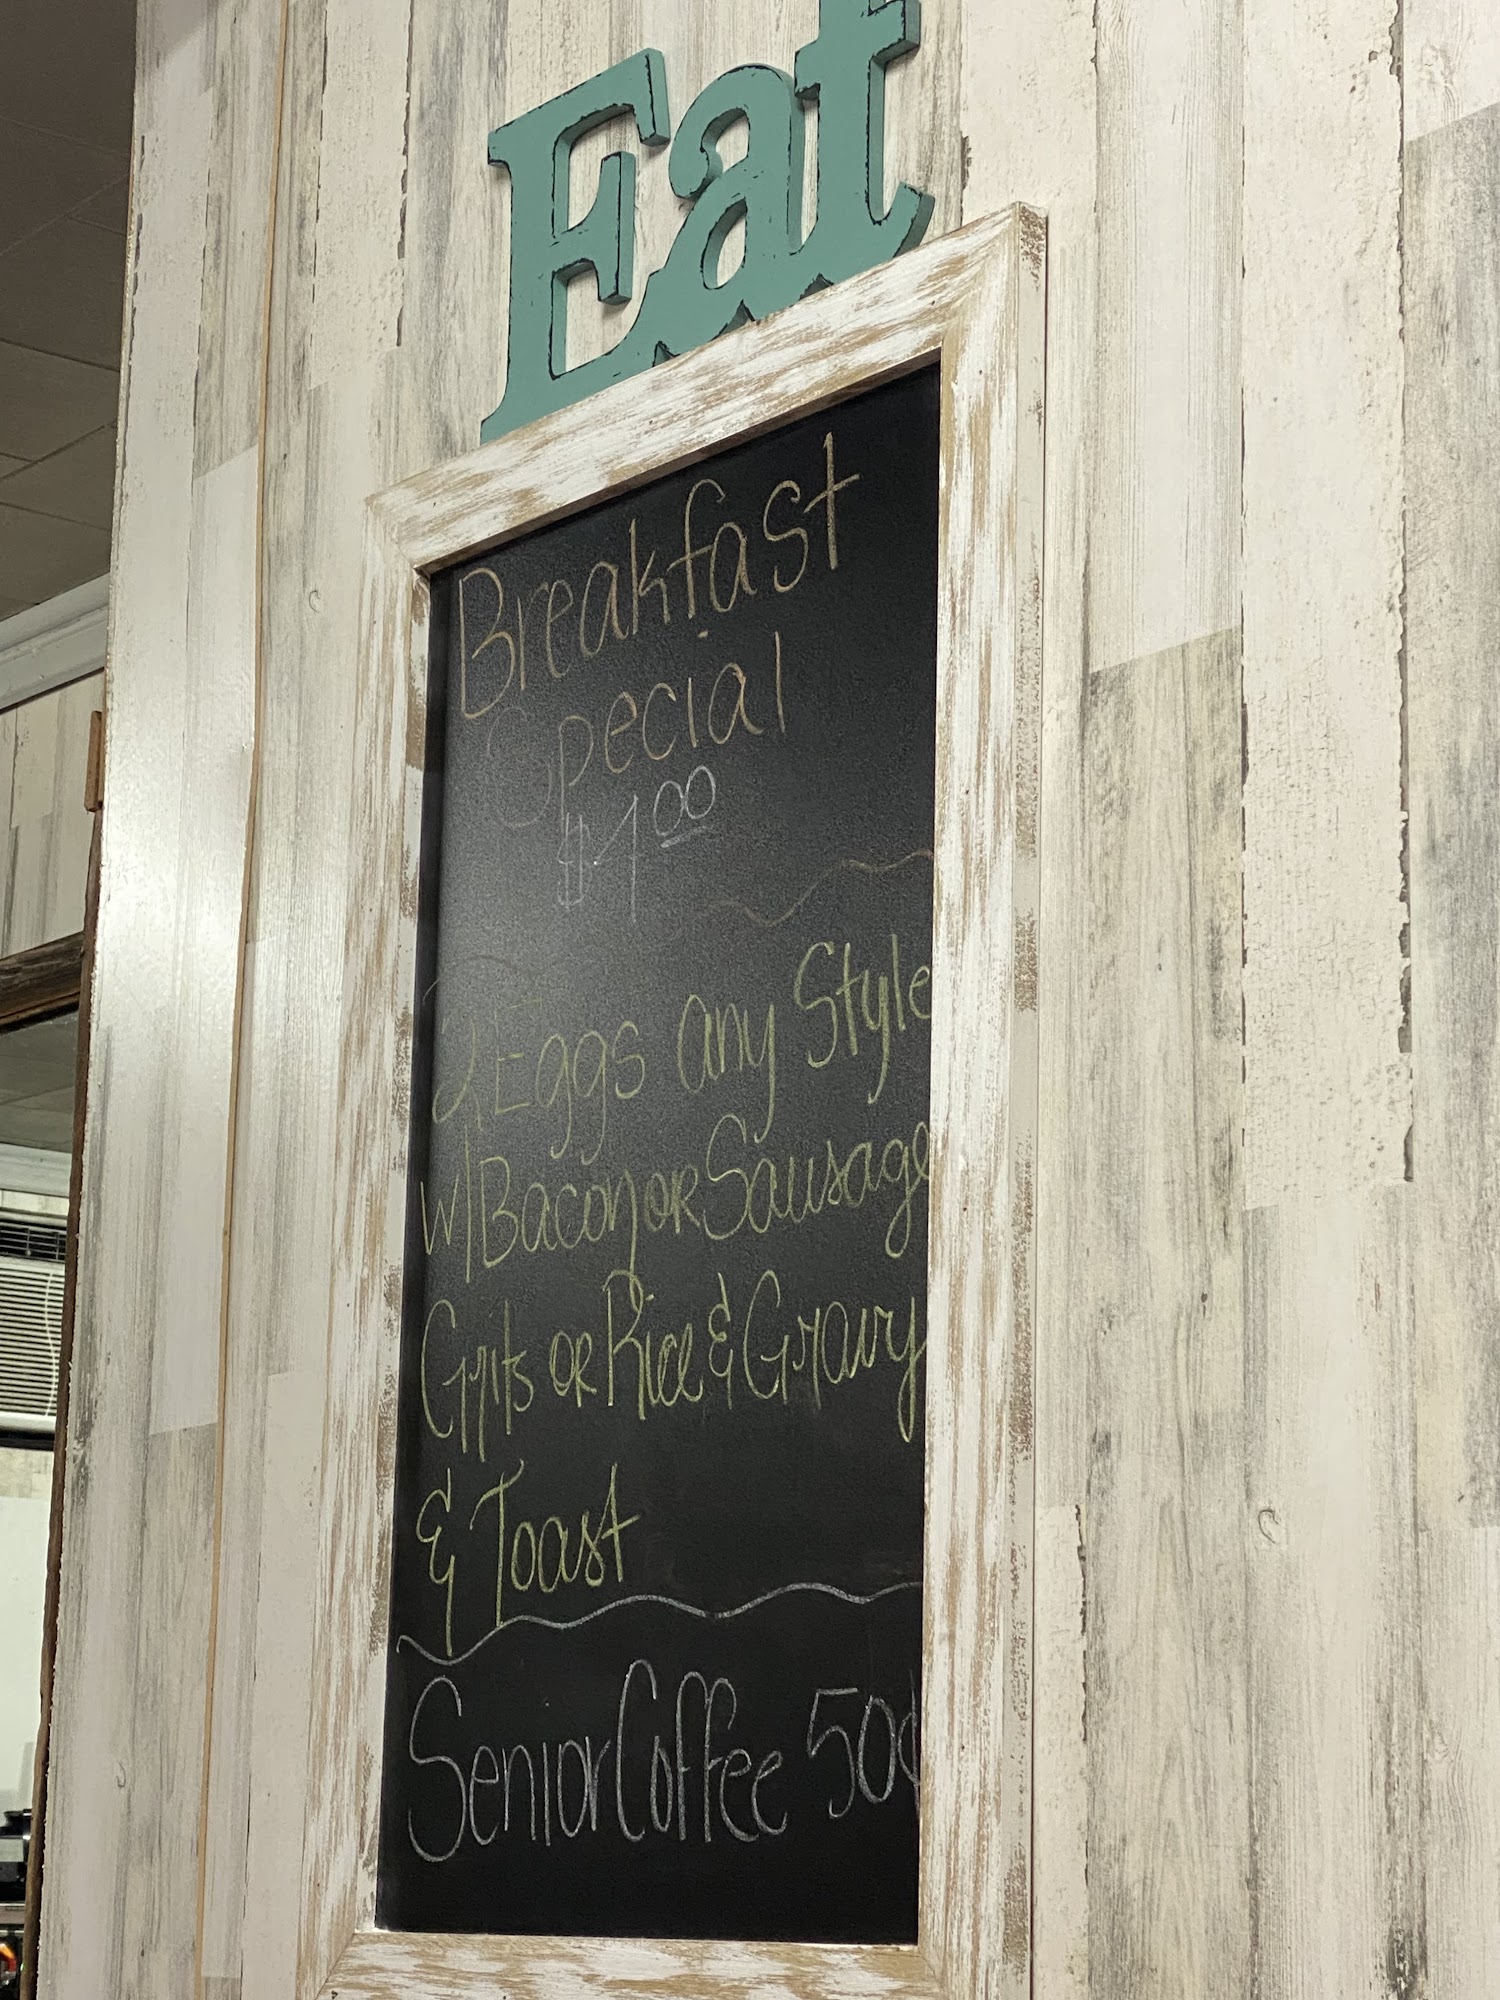 Eat
Breakfast
Special
$4⁰⁰
2 Eggs any Style
w/Bacon or Sausage
Grits or Rice & Gravy
& Toast
Senior Coffee 50¢